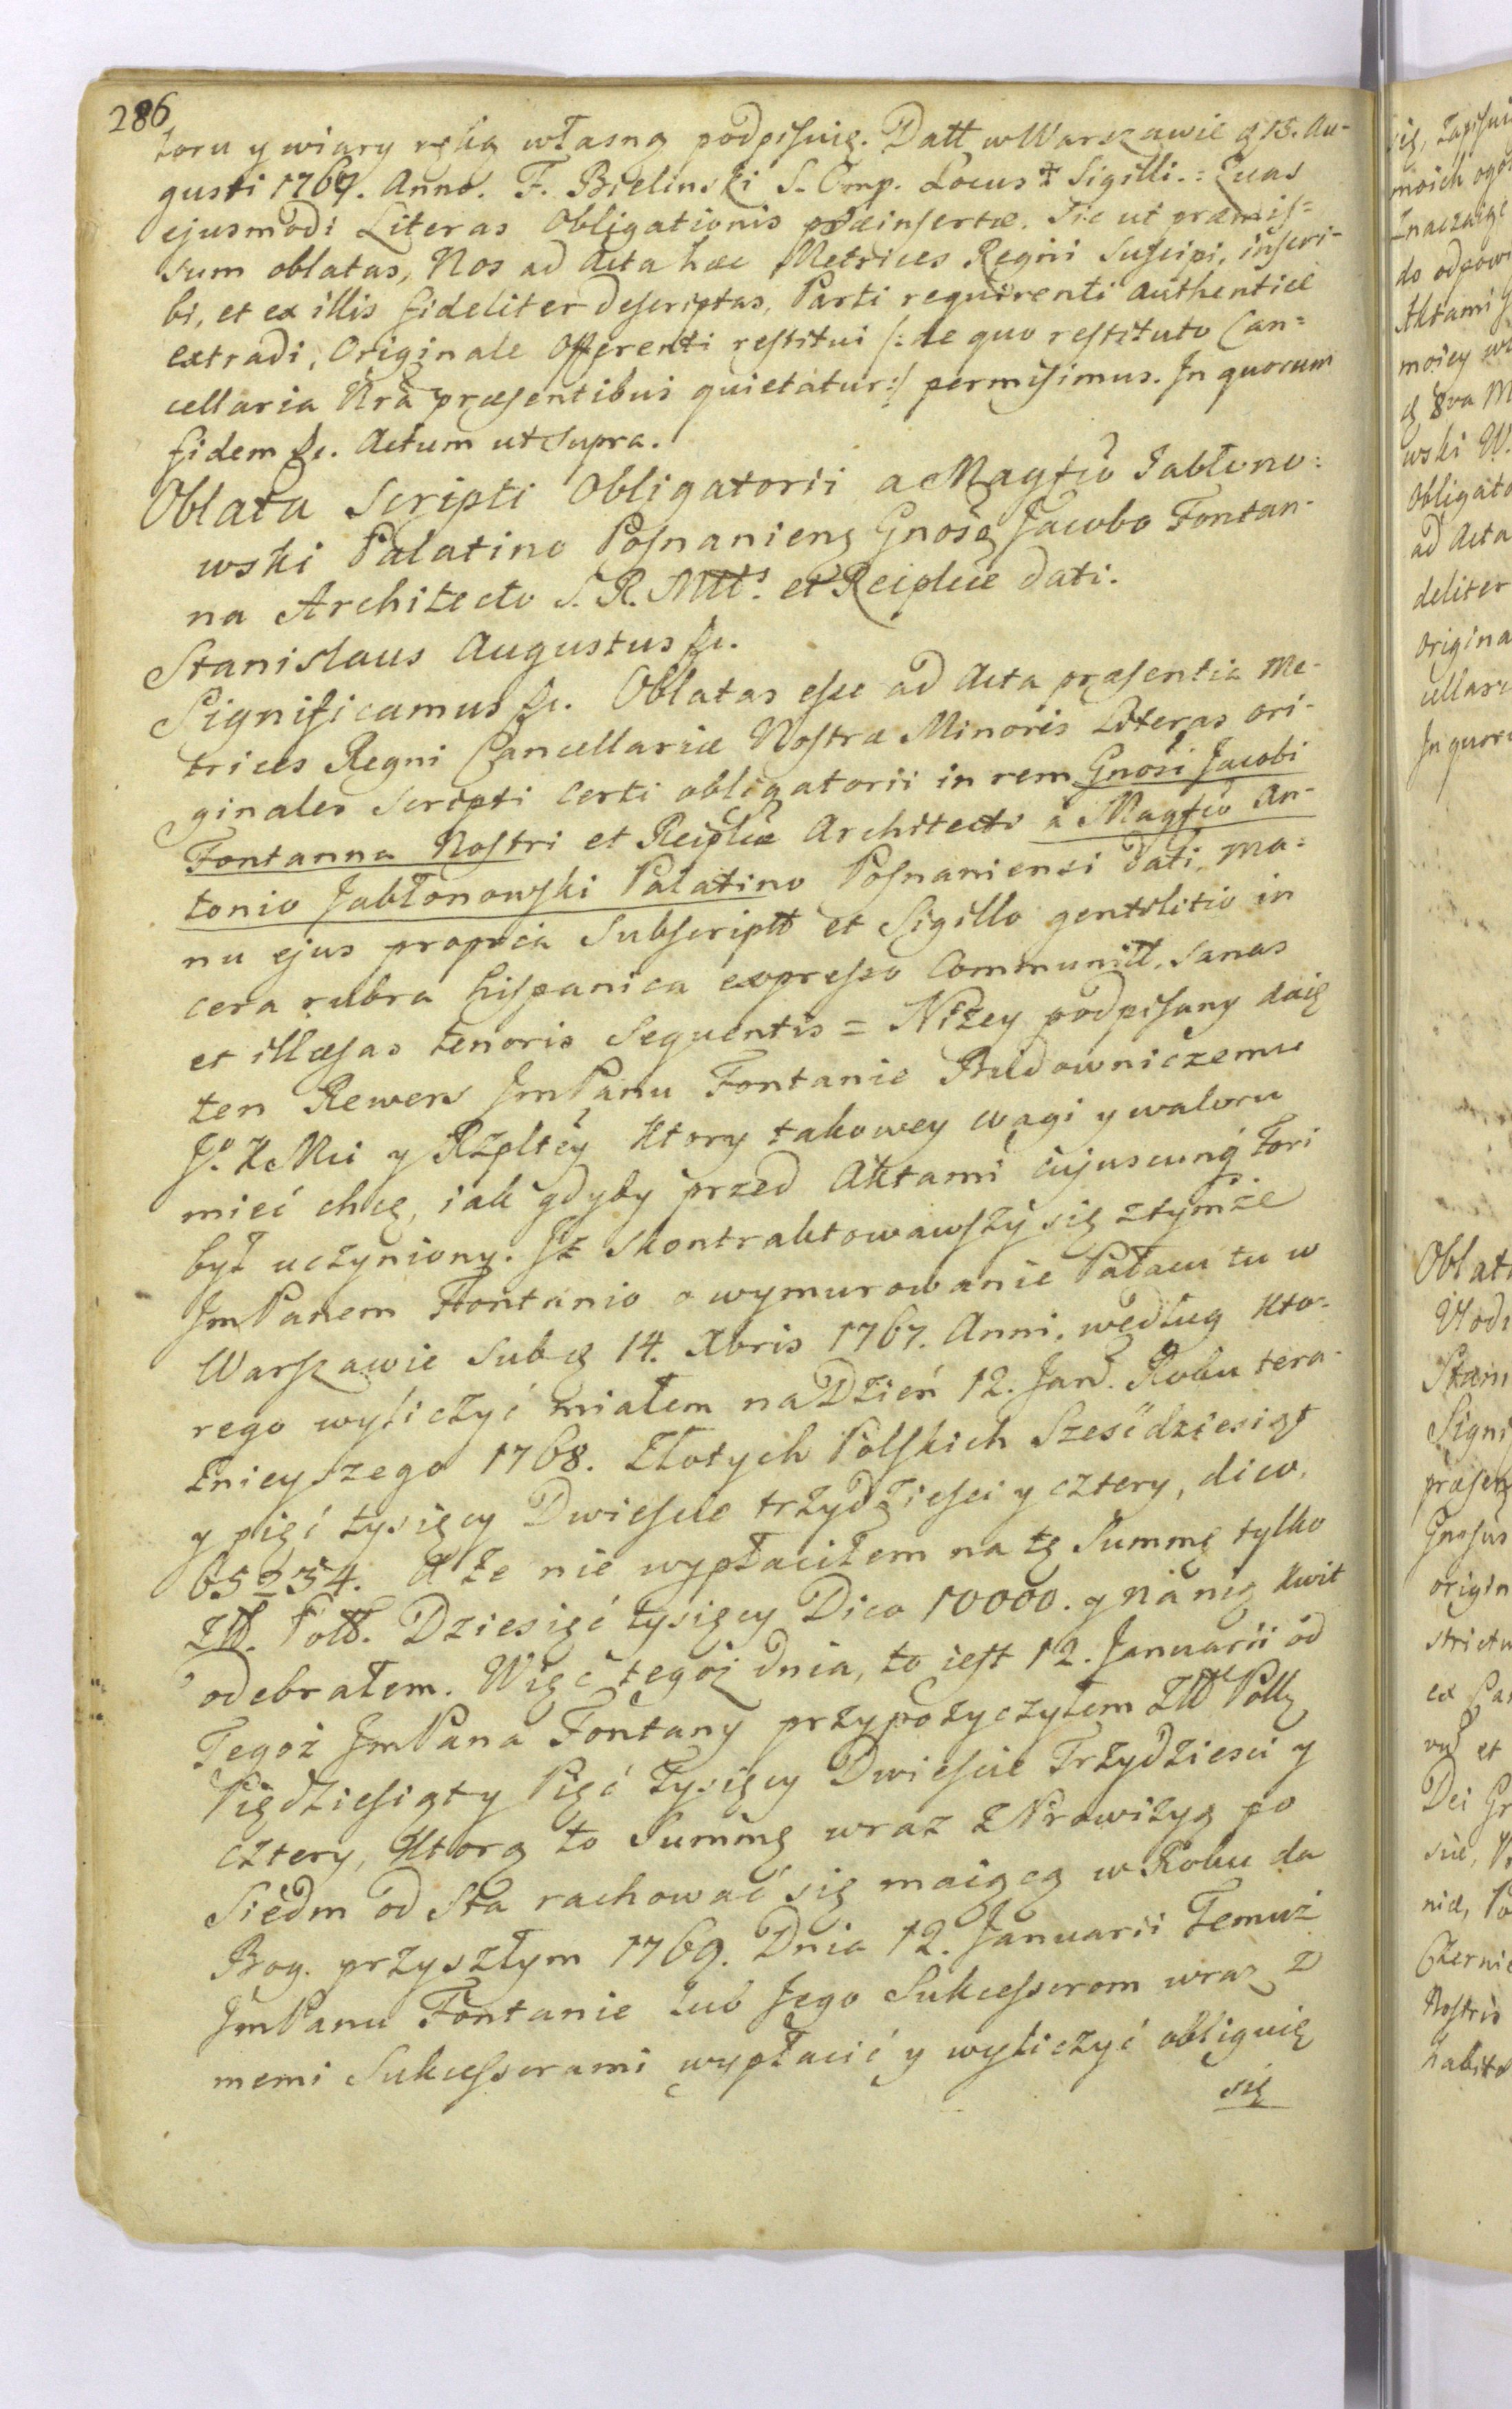 286
toru y wiary ręką własną podpisuię. Datt w Warszawie d. 15. Au-
gusti 1767. Anno. F. Bielinski S. Omp. Locus ‡ Sigilli.: Quas
ejusmodi Literas Obligationis præinsertæ. Sic ut præmis=
sum oblatas, Nos ad Acta hæc Metrices Regni Suscipi, inscri-
bi, et ex illis fideliter descriptas, Parti requirenti authentice
extradi, Originale Offerenti restitui /: de quo restituto Can=
cellaria Nrâ præsentibus quietatur :/ permisimus. In quorum
fidem &c. Actum ut supra.
Oblata Scripti Obligatorii a Magfco Jabłono:
wski Palatino Posnaniens Gnoso Jacobo Fontan-
na Architecto S. R. Mtts. et Reiplicæ dati.
Stanislaus Augustus &c.
Significamus &c. Oblatas esse ad Acta præsentia Me-
trices Regni Cancellariæ Nostræ Minoris Literas ori-
ginales Scripti certi obligatorii in rem Gnosi Jacobi
Fontanna Nostri et Reiplicæ Architecti â Magfco An-
tonio Jabłonowski Palatino Posnaniensi dati, ma=
nu ejus propria Subscriptt et Sigillo gentilitio in
cera rubra hispanica expresso Communitt. Sanas
et illæsas tenoris Sequentis = Niżey podpisany daię
ten Rewers JmPanu Fontanie Budowniczemu
Jo. K Mci y Rzpltey Ktory takowey wagi y waloru
mieć chcę, iak gdyby przed Aktami cujuscunq Fori
był uczyniony. Iż skontraktowawszy się z tymże
JmPanem Fontanio o wymurowanie Pałacu tu w
Warszawie Sub d. 14. Xbris 1767. Anni. według Kto-
rego wyliczyć miałem na Dzień 12. Jan. Roku tera-
źnieyszego 1768. Złotych Polskich Sześćdziesiąt
y pięć tysięcy Dwieście trzydzieści y cztery, dico.
65234. A że nie wypłaciłem na tę Summę tylko
Złł. Poll. Dziesięć tysięcy Dico 10000. y na nią kwit
odebrałem. Więc tegoż dnia, to iest 12. Januarii od
Tegoż JmPana Fontany przypożyczyłem Złł Pollg
Pięćdziesiąt y Pięć Tysięcy Dwieście Trzydzieści y
cztery, Ktorą to Summę wraz z Prowizyą po
Siedm od Sta rachować się maiącą w Roku da
Bog. przyszłym 1769. Dnia 12. Januarii Temuż
JmPanu Fontanie lub Jego Sukcessorom wraz z
memi Sukcessorami wypłacić y wyliczyć obliguię
się